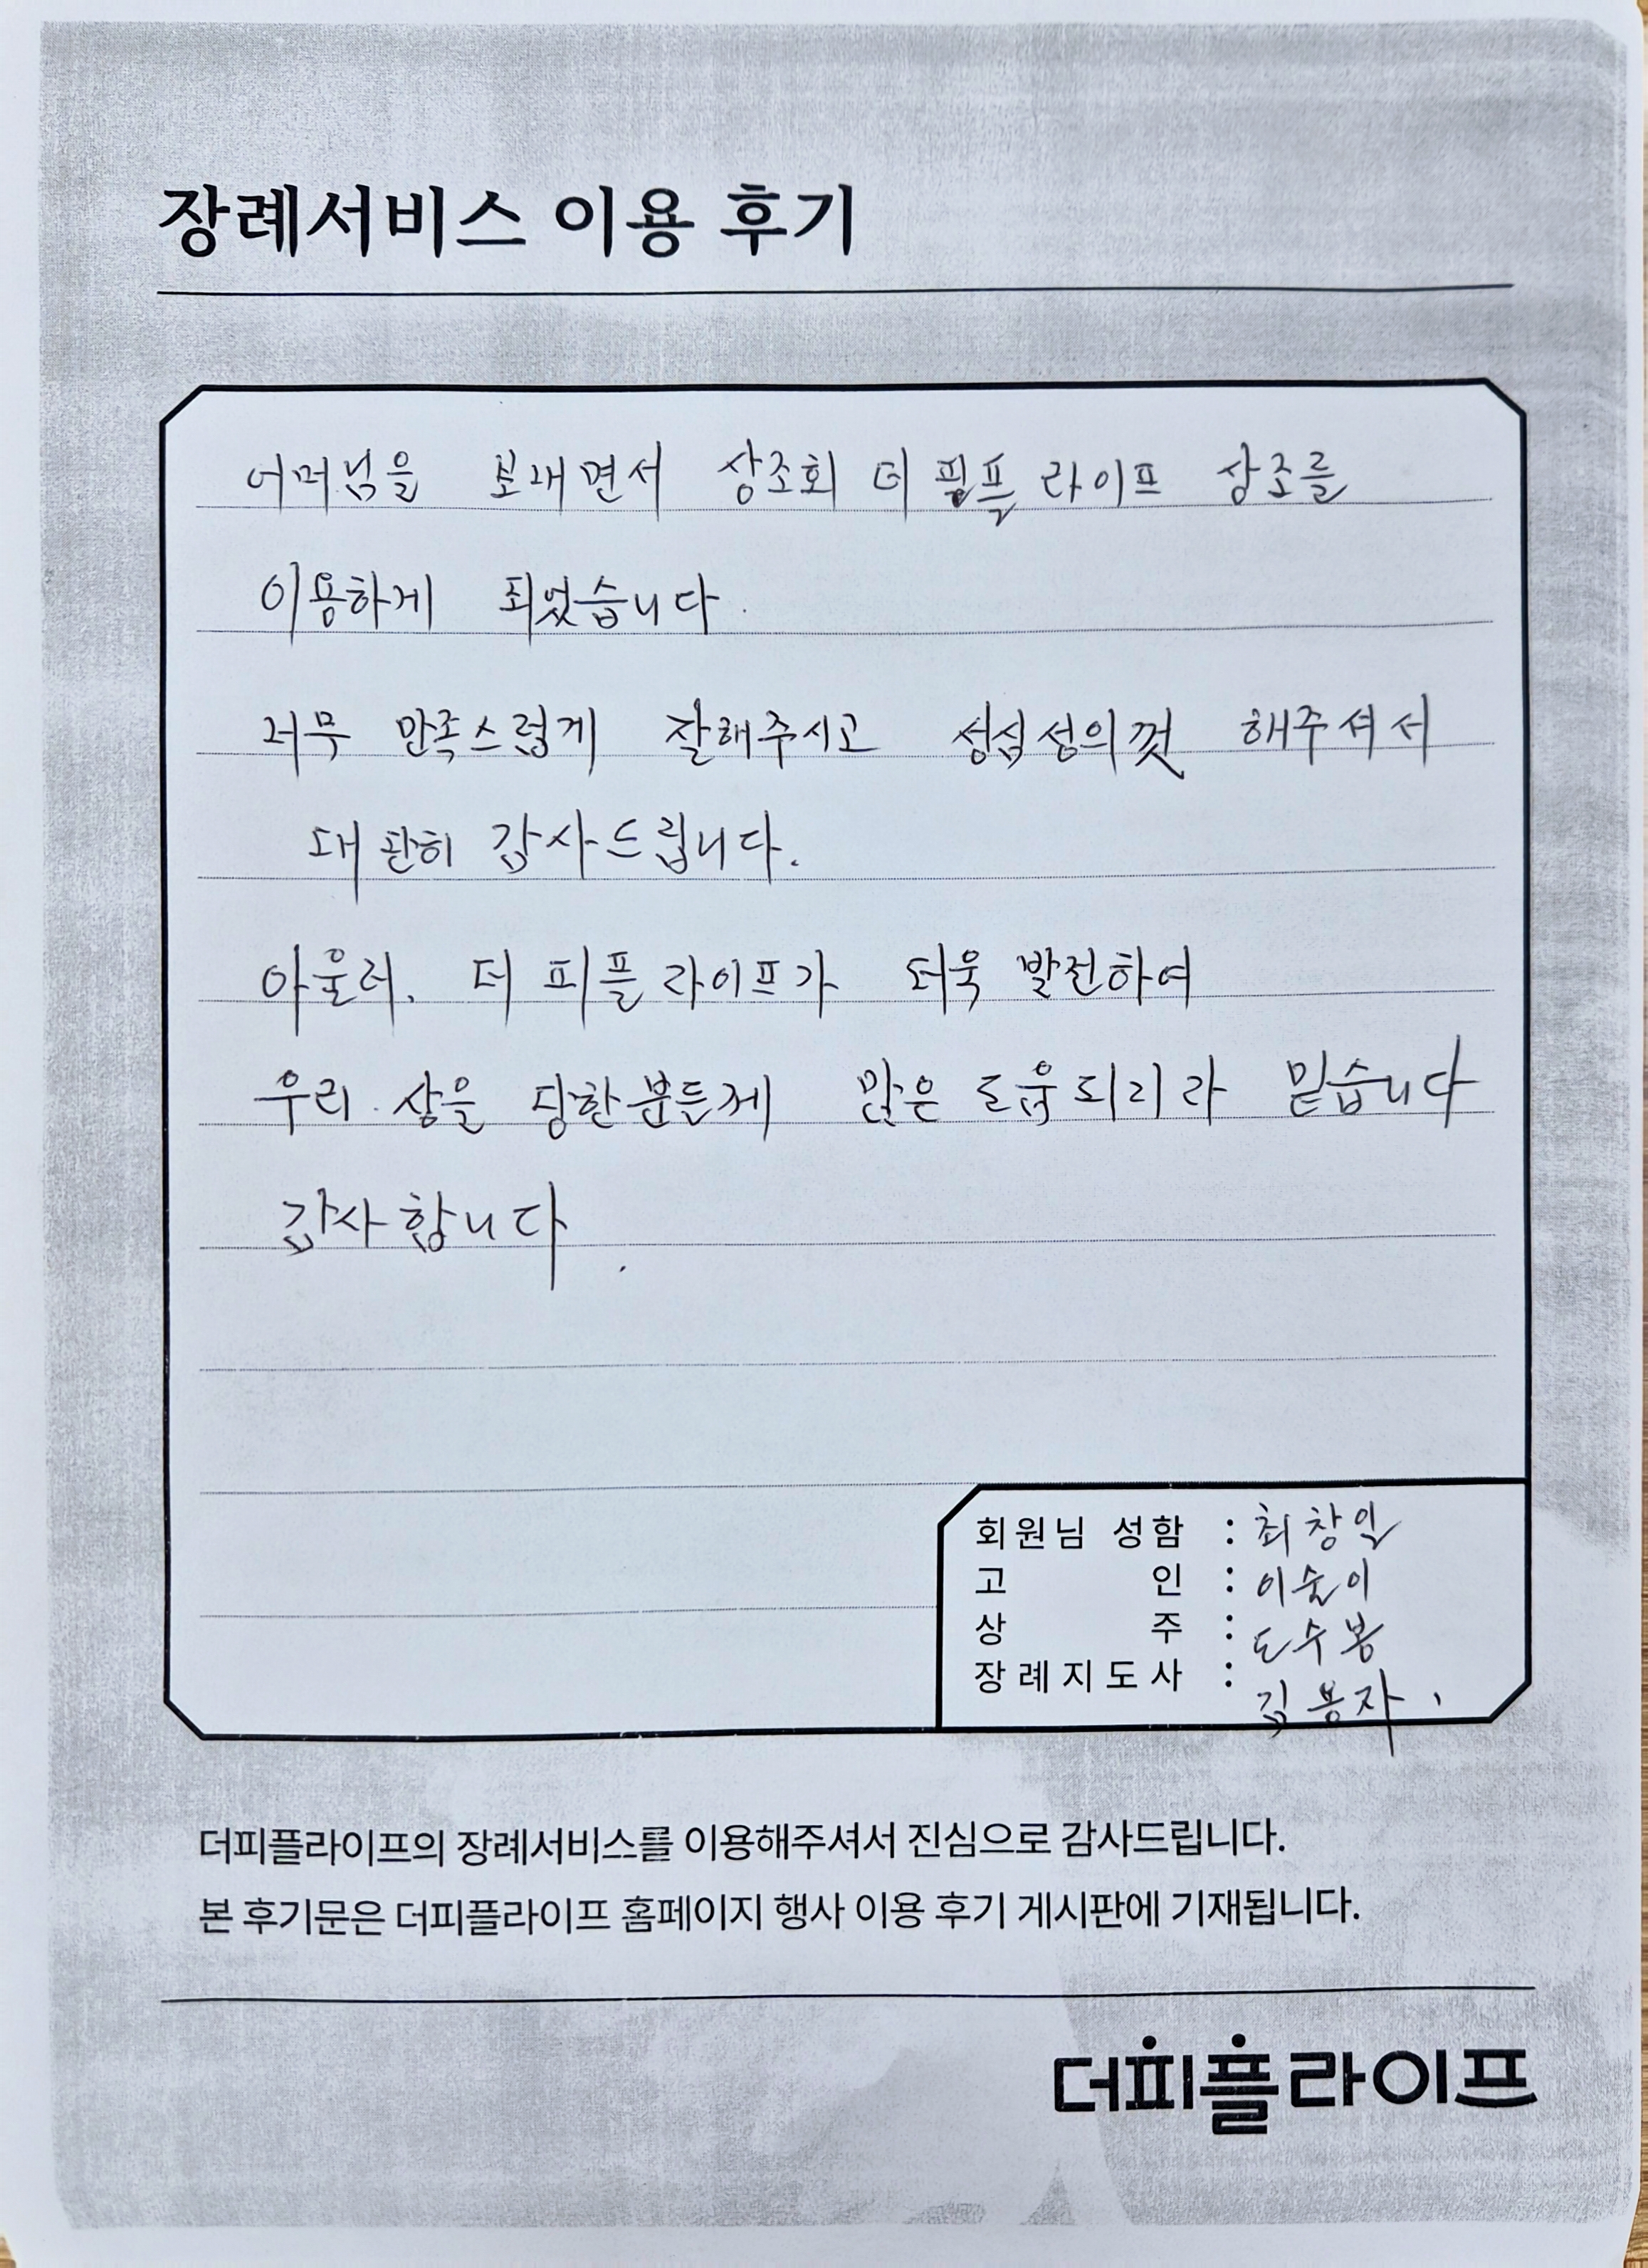 장례서비스 이용 후기
어머님을 보내면서 상조회 더 필플 라이프 상조를
이용하게 되었습니다.
너무 만족스럽게 잘해주시고 성심성의껏 해주셔서
대단히 감사드립니다.
아울러, 더 피플 라이프가 더욱 발전하여
우리 상을 당한분들게 많은 도움되리라 믿습니다
감사합니다.
회원님 성함 : 최창일
고 인 : 이순이
상 주 : 도수봉
장례지도사 : 김용자
더피플라이프의 장례서비스를 이용해주셔서 진심으로 감사드립니다.
본 후기문은 더피플라이프 홈페이지 행사 이용 후기 게시판에 기재됩니다.
더피플라이프